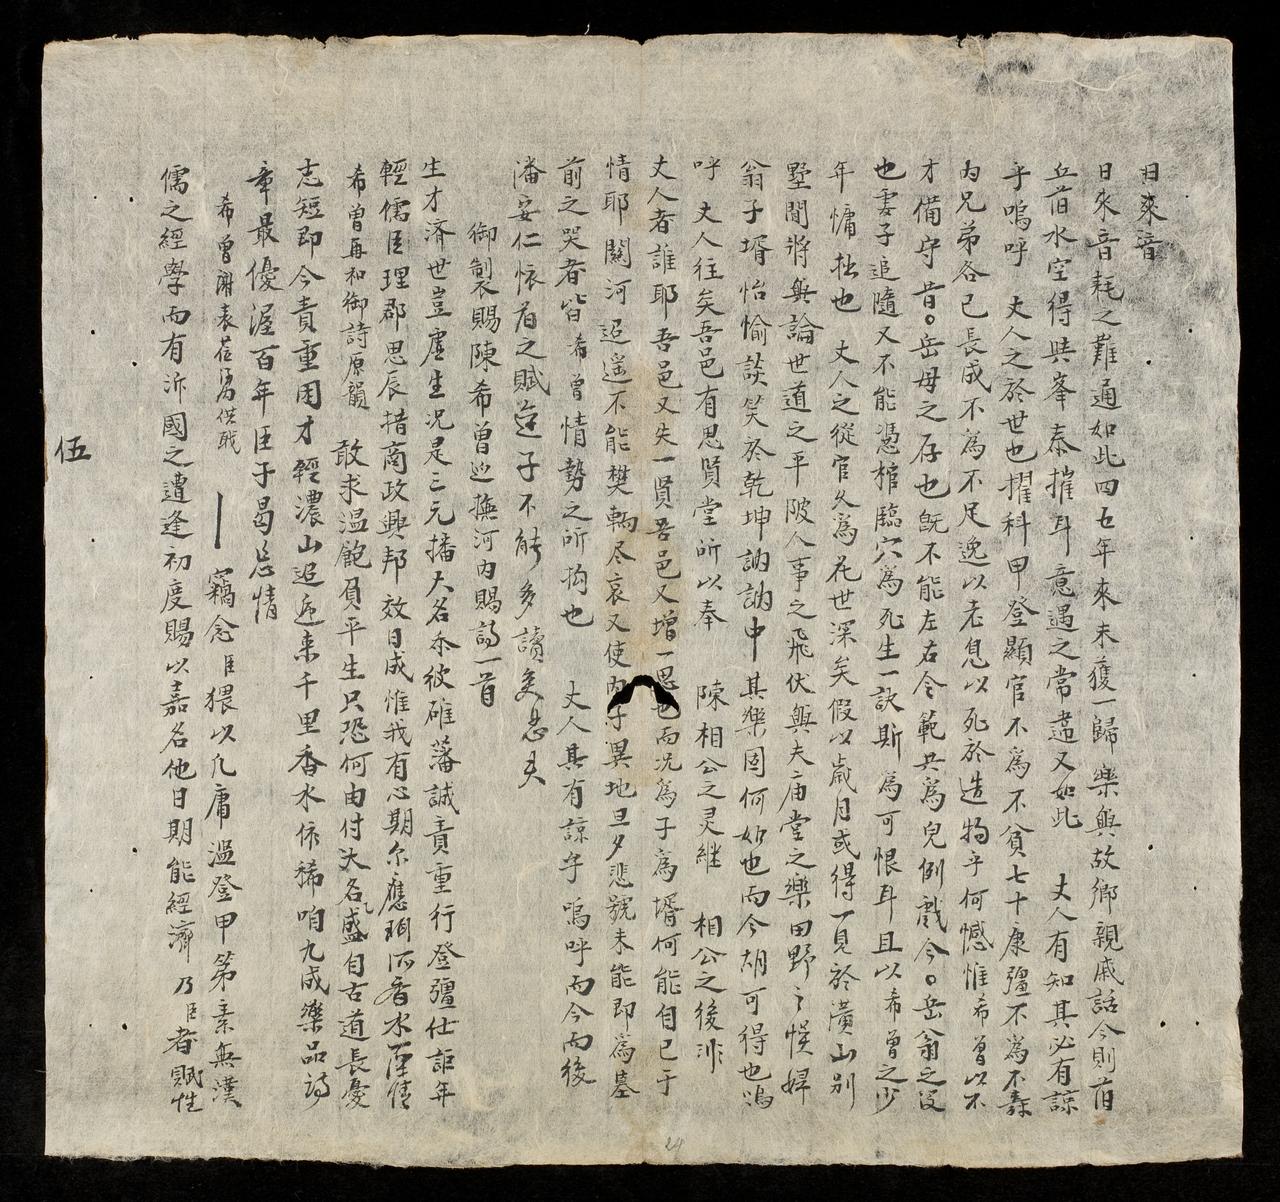 日來音
日來音耗之難通如此四五年來未獲一歸樂與故鄉親戚話今則萠
丘萠水空得與峯泰摧耳意遇之常違又如此 丈人有知其必有諒
乎嗚呼 丈人之於世也擢科甲登顯官不為不貧七十康彊不為不壽
為兄弟各已長成不為不足逸以老息以死於造物乎何憾惟希曾以不
才備守昔岳母之存也既不能左右令範共為兒例戲今岳翁之沒
也妻子追隨又不能憑棺臨穴為死生一訣斯為可恨耳且以希曾之少
年慵拙也 丈人之從官久為花世深矣假以歲月或得一見於潢山別
墅間將與論世道之平陂人事之飛伏與夫庙堂之樂田野之悮婦
翁子壻怡愉談笑於乾坤訥訥中其樂固何如也而今胡可得也嗚
呼 丈人往矣吾邑有思賢堂所以奉 陳相公之灵継 相公之後非
丈人者誰耶吾邑又失一賢吾邑又增一思也而况為子為壻何能自已于
情耶關河迢遥不能樊輀尽哀又使內子異地旦夕悲號未能即為墓
前之哭者皆希曾情勢之所拘也 丈人具有諒乎嗚呼而今而後
潘安仁懷㫪之賦從子不能多讀矣悲夫
御製賜陳希曾巡撫河内賜詩一首
生才濟世豈虛生况是三元播大名黍彼碓藩誠責重行登彊仕詎年
輕儒臣理郡思辰措商政興邦效日成惟我有心期尔應珥派香水一潭情
希曾再和御詩原韻 敢求温飽負平生只恐何由付大名盛自古道長憂
志短即今責重困才輕濃山迢逓来千里香水依稀咱九成樂品詩
章最優渥百年臣子曷忘情
希曾謝表莅為供戝 竊念臣猥以凡庸溫登甲第素無漢
儒之經學而有沂國之遭逢初度賜以嘉名他日期能經濟乃臣者賦性
伍
24